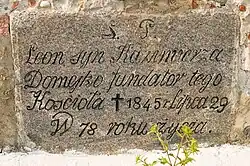 Ś. P
Leon syn Kazimierza
Domejko fundator tego
Kościoła † 1845 r Lipca 29
W 78 roku życia.